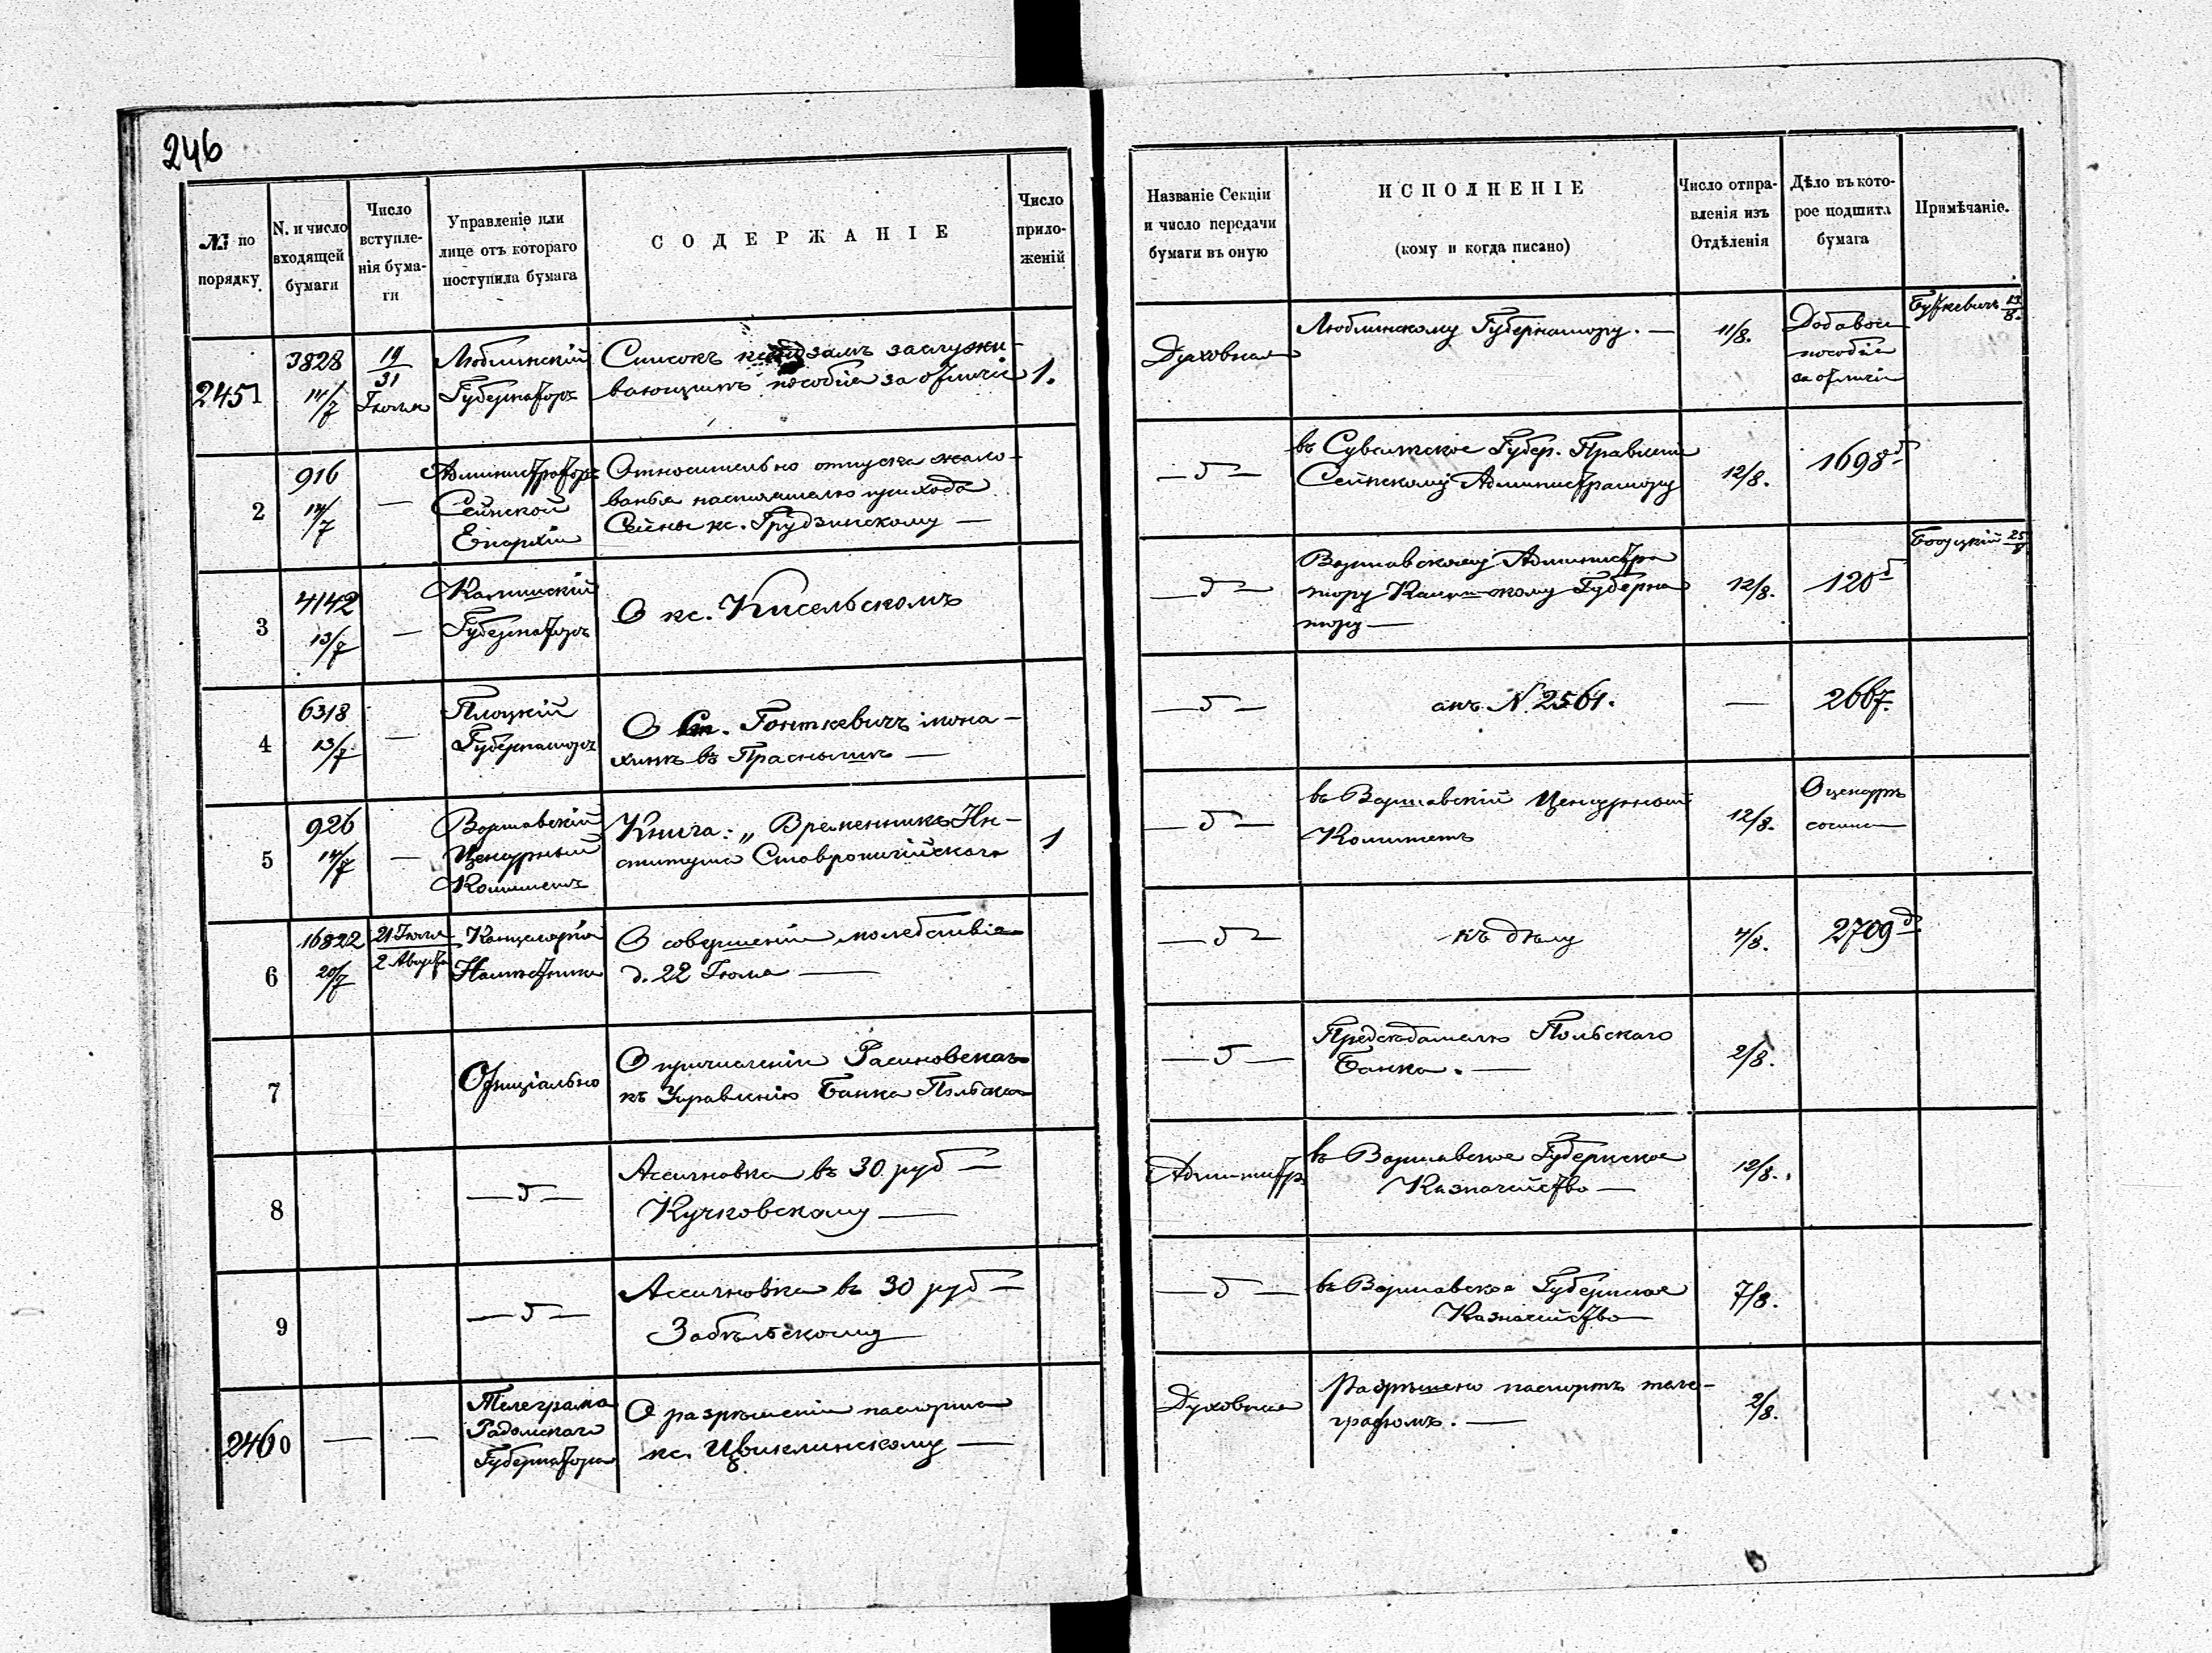 246
№ по порядку
N. и число входящей бумаги
Число вступленія бумаги
Управленіе или лице отъ котораго поступила бумага
СОДЕРЖАНІЕ
Число приложеній
Названіе Секціи и число передачи бумаги въ оную
ИСПОЛНЕНІЕ
(кому и когда писано)
Число отправленія изъ Отдѣленія
Дѣло въ которое подшита бумага
Примѣчаніе.
2451
3828
14/7
19/31
Іюля
Люблинскій
Губернаторъ
Списокъ ксендзамъ заслужи-
вающимъ пособіе за отличіе
1.
Духовная
Люблинскому Губернатору. —
11/8.
Добавоч
пособіе
за отличіе
13/8.
2
916
14/7
—
Администраторъ
Сейнской
Епархіи
Относительно отпуска жало-
ванья настоятелю прихода
Сейны кс. Грудзинскому —
— д —
въ Сувалкское Губер. Правленіе
Сейнскому Администратору
12/8.
1698 д
3
4142
13/7
—
Калишскій
Губернаторъ
О кс. Кисельскомъ
— д —
Варшавскому Администра
тору Калишскому Губерна
тору —
12/8.
120 д
25/8
4
6318
13/7
—
Плоцкій
Губернаторъ
О Гонткевичъ мона-
хинѣ въ Праснышѣ —
— д —
N. 2561.
—
2667.
5
926
14/7
—
Варшавскій
Цензурный
Комитетъ
Книга: „Временникъ Ин-
ститута Ставропигійскаго
1
— д —
въ Варшавскій Цензурный
Комитетъ
12/8.
О цензурѣ
6
16822
20/7
21 Іюля
2 Августа
Канцелярія
Намѣстника
О совершеніи молебствія
д. 22 Іюля —
— д —
къ дѣлу
4/8.
2709 д
7
Офиціально
О причисленіи
къ Управленію Банка Польскаго
— д —
Предсѣдателю Польскаго
Банка. —
2/8.
8
— д —
Ассигновка въ 30 руб —
Кучковскому —
Администр
въ Варшавское Губернское
Казначейство —
12/8.
9
— д —
Ассигновка въ 30 руб —
Забѣльскому
— д —
въ Варшавское Губернское
Казначейство
7/8.
2460
—
—
Телеграма
Радомскаго
Губернатора
О разрѣшеніи паспорта
кс. Цвиклинскому —
Духовная
Разрѣшено паспортъ теле-
графомъ. —
2/8.